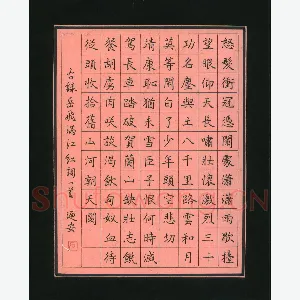 怒髮衝冠憑闌處瀟瀟雨歇擡
望眼仰天長嘯壯懷激烈三十
功名塵與土八千里路雲和月
莫等閒白了少年頭空悲切
靖康恥猶未雪臣子恨何時滅
駕長車踏破賀蘭山缺壯志飢
餐胡虜肉笑談渴飲匈奴血待
從頭收拾舊山河朝天闕
右錄岳飛滿江紅詞一首